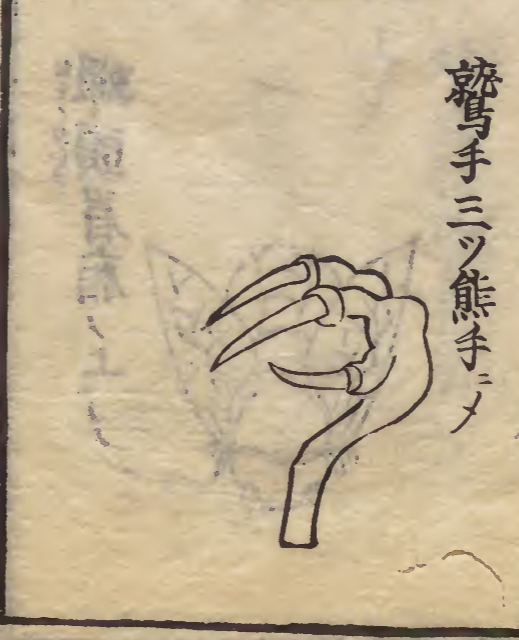 鷲手三ツ熊手ニメ